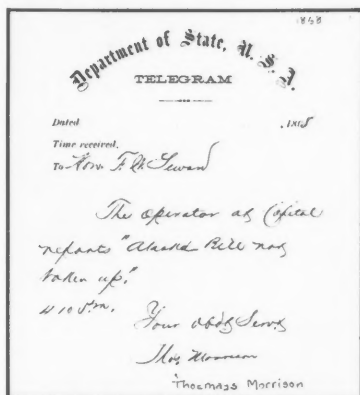 868
Department of State, U. S. A.
TELEGRAM
Dated , 1868
Time received,
To Hon. F. W. Seward
The operator at Capital
reports "Alaska Bill not
taken up."
4 10 P.m.
Your obdt Servt
Thos Morrison
Thoemass Morrison